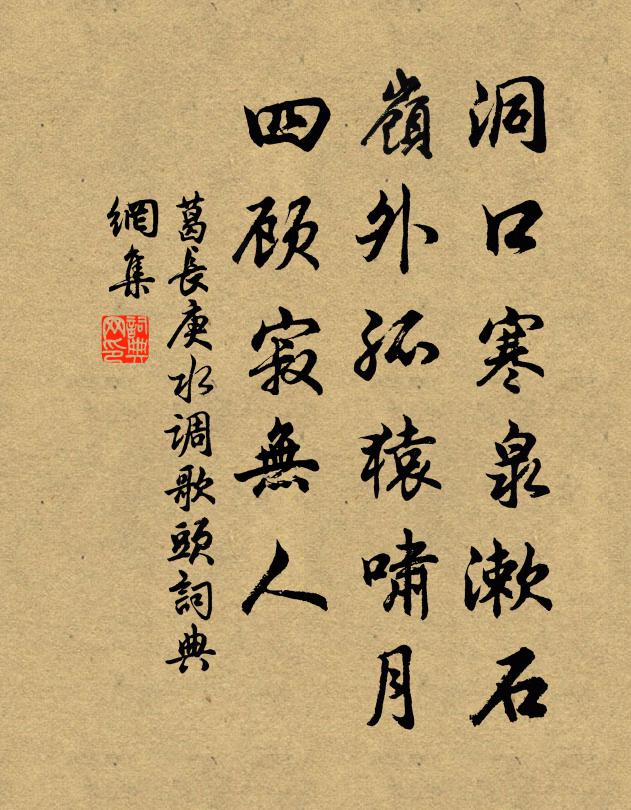 洞口寒泉漱石
嶺外孤猿嘯月
四顾寂無人
葛長庚水调歌頭詞典
網集
詞典网印